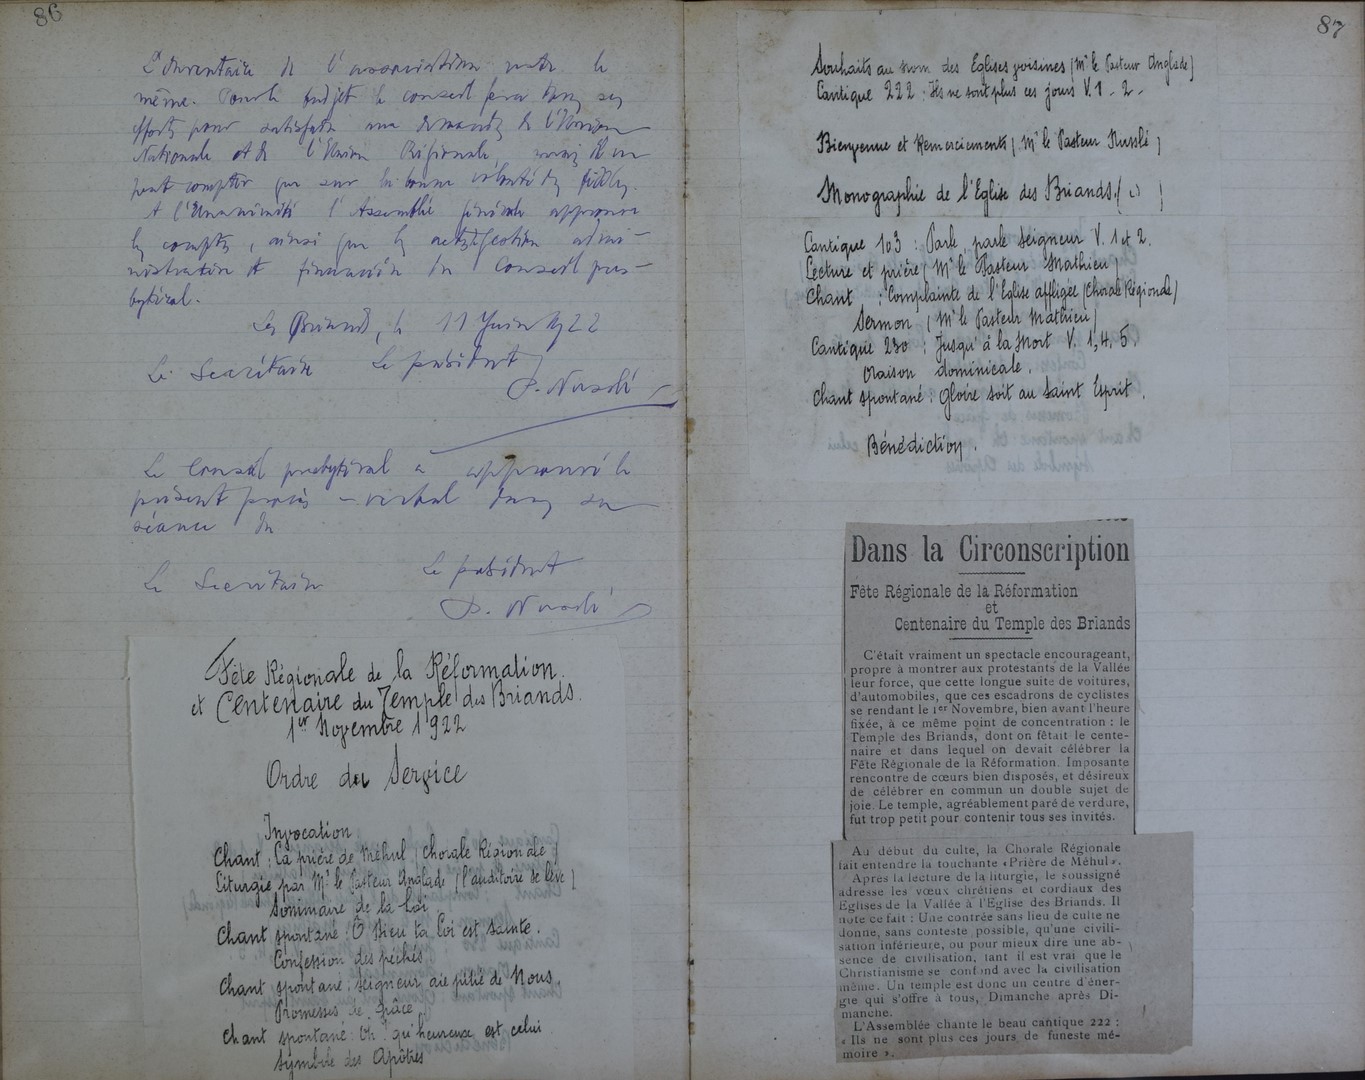 86
L'inventaire de l'association reste le
même. Pour le budget le conseil fera tous ses
efforts pour satisfaire aux demandes de l'Union
Nationale et de l'Union Régionale, mais il ne
peut compter que sur la bonne volonté des fidèles.
A l'Unanimité l'Assemblée générale approuve
les comptes, ainsi que la gestion admi-
nistrative et financière du Conseil pres-
bytéral.
Les Briands, le 11 Juin 1922
Le Secrétaire Le président
Le Conseil presbytéral a approuvé le
présent procès-verbal dans sa
séance du
Le Secrétaire Le président
Fête Régionale de la Réformation.
et Centenaire du Temple des Briands.
1er Novembre 1922
Ordre du Service
Invocation
Chant : La prière de Méhul (Chorale Régionale)
Liturgie par Mr le Pasteur Anglade (l'auditoire se lève)
Sommaire de la Loi
Chant spontané : O Dieu ta Loi est Sainte.
Confession des péchés
Chant spontané : Seigneur aie pitié de Nous
Promesses de grâce
Chant spontané : Oh ! qu'heureux est celui
Symbole des Apôtres
87
Souhaits au nom des Eglises voisines (Mr le Pasteur Anglade)
Cantique 222 : Ils ne sont plus ces jours V. 1 - 2 -
Bienvenue et Remerciements (Mr le Pasteur
Monographie de l'Eglise des Briands (
Cantique 103 : Parle, parle Seigneur V. 1 et 2.
Lecture et prière (Mr le Pasteur Mathieu)
Chant : Complainte de l'Eglise affligée (Chorale Régionale)
Sermon (Mr le Pasteur Mathieu)
Cantique 230 : Jusqu'à la Mort V. 1, 4, 5.
Oraison dominicale.
Chant spontané : Gloire soit au Saint Esprit.
Bénédiction.
Dans la Circonscription
Fête Régionale de la Réformation
et
Centenaire du Temple des Briands
C'était vraiment un spectacle encourageant,
propre à montrer aux protestants de la Vallée
leur force, que cette longue suite de voitures,
d'automobiles, que ces escadrons de cyclistes
se rendant le 1er Novembre, bien avant l'heure
fixée, à ce même point de concentration : le
Temple des Briands, dont on fêtait le cente-
naire et dans lequel on devait célébrer la
Fête Régionale de la Réformation. Imposante
rencontre de cœurs bien disposés, et désireux
de célébrer en commun un double sujet de
joie. Le temple, agréablement paré de verdure,
fut trop petit pour contenir tous ses invités.
Au début du culte, la Chorale Régionale
fait entendre la touchante «Prière de Méhul».
Après la lecture de la liturgie, le soussigné
adresse les vœux chrétiens et cordiaux des
Eglises de la Vallée à l'Eglise des Briands. Il
note ce fait : Une contrée sans lieu de culte ne
donne, sans conteste possible, qu'une civili-
sation inférieure, ou pour mieux dire une ab-
sence de civilisation, tant il est vrai que le
Christianisme se confond avec la civilisation
même. Un temple est donc un centre d'éner-
gie qui s'offre à tous, Dimanche après Di-
manche.
L'Assemblée chante le beau cantique 222 :
« Ils ne sont plus ces jours de funeste mé-
moire ».